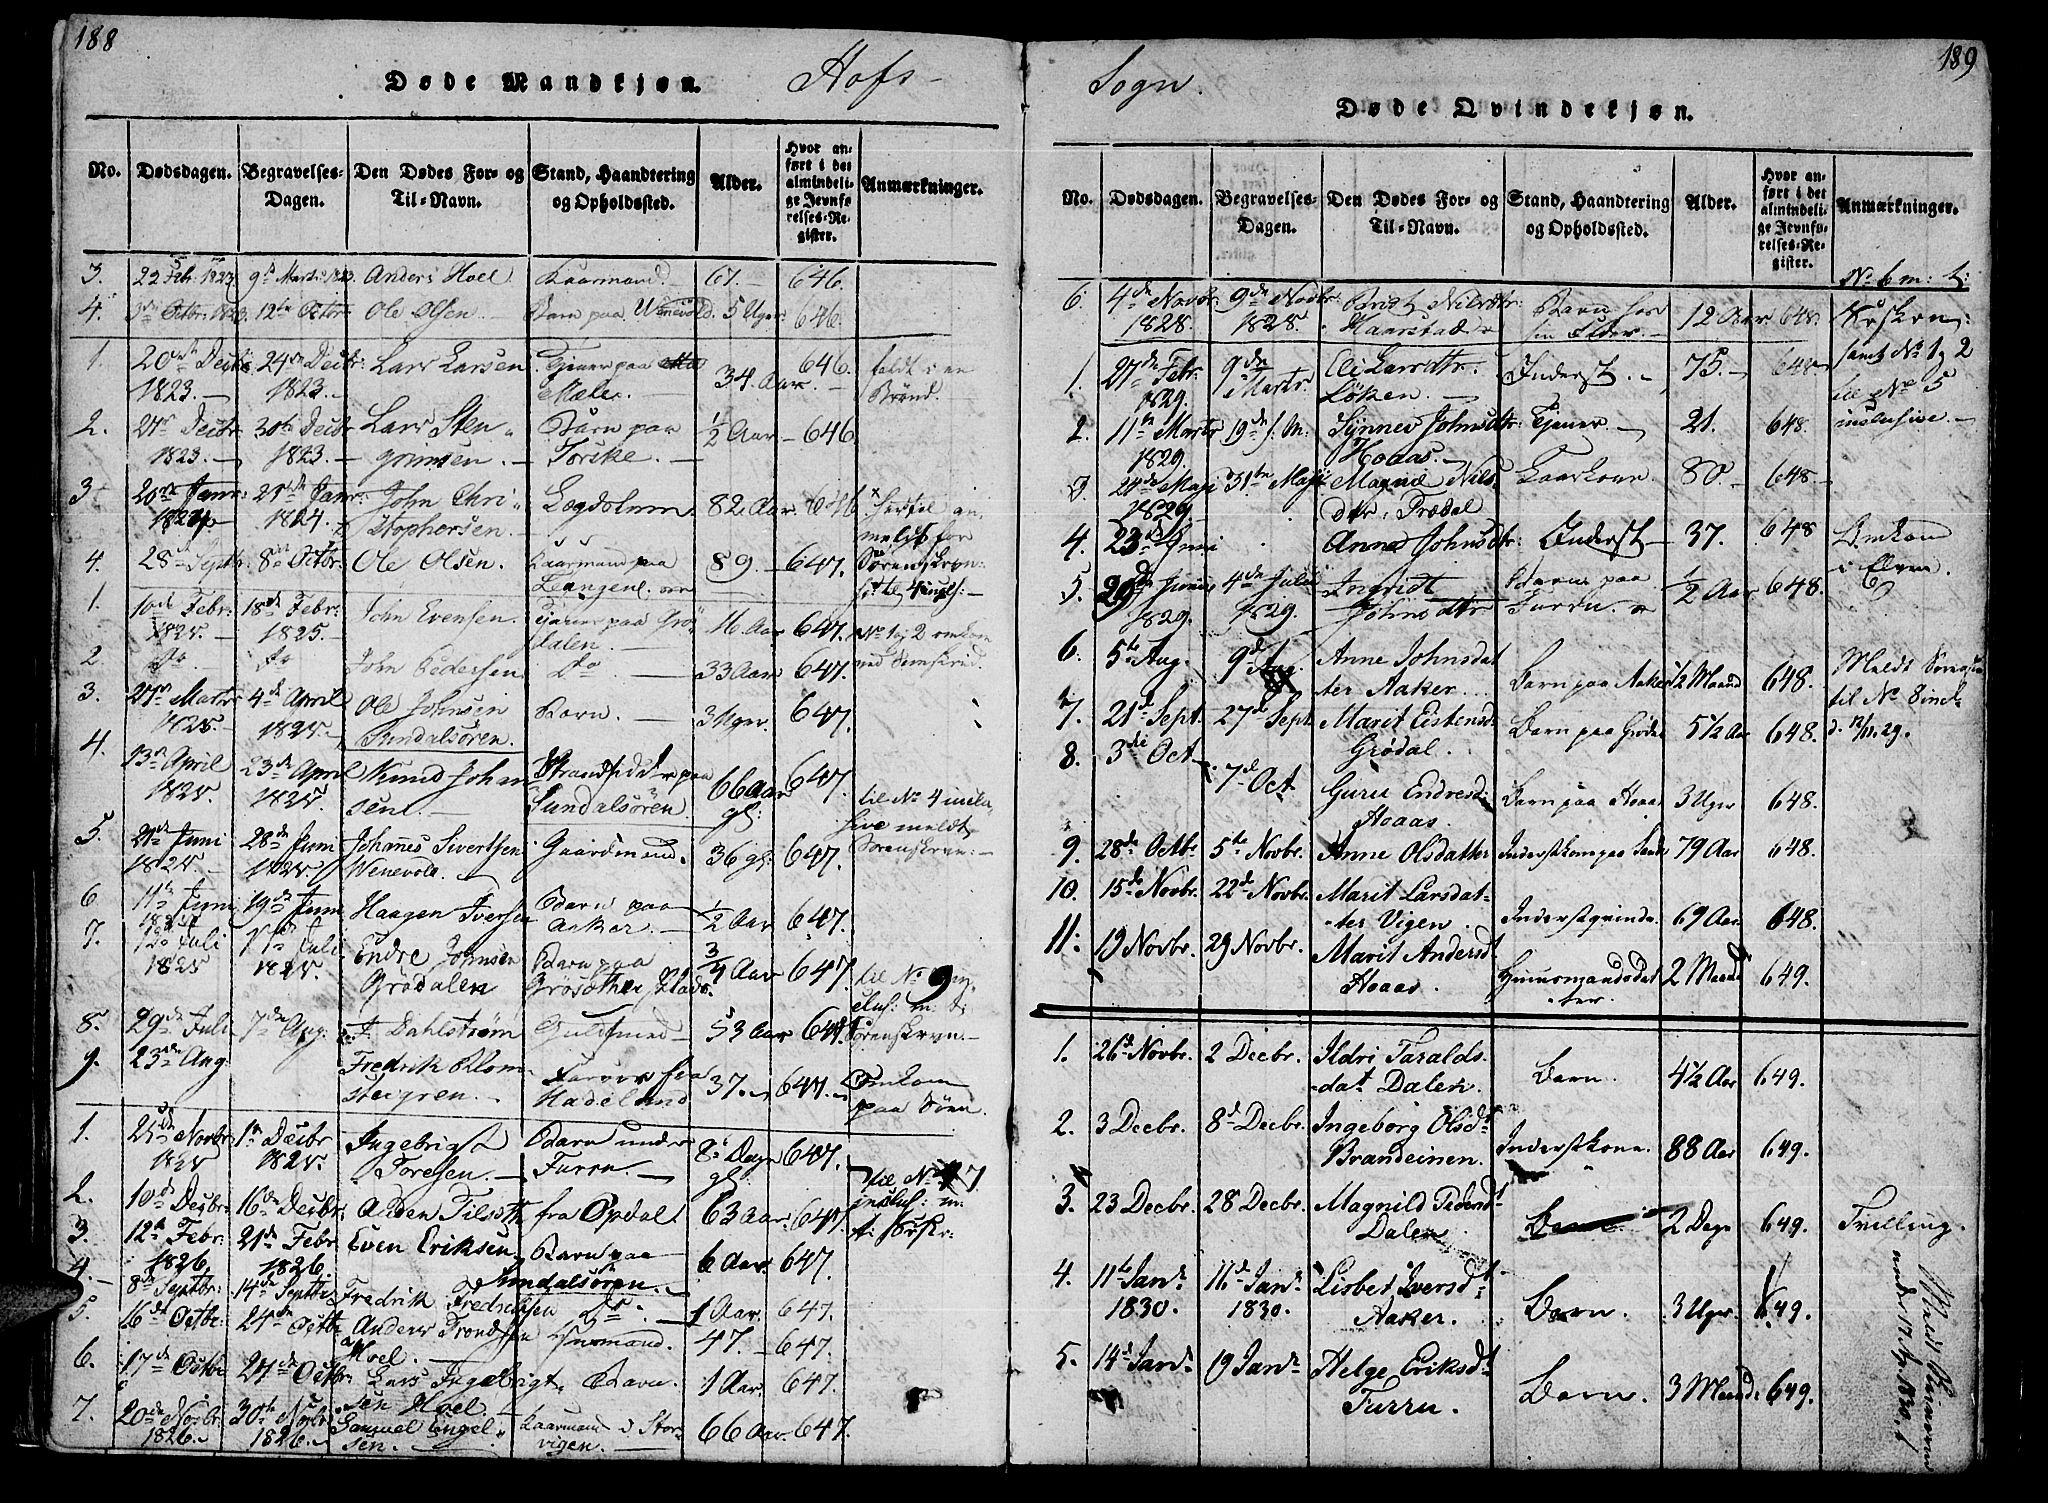 188
Døde Mandkjøn. Hofs-
No. Dødsdagen. Begravelses-Dagen. Den Dødes For- og Til-Navn. Stand, Haandtering og Opholdssted. Alder. Hvor anført i det almindelige Jevnførelses-Register. Anmærkninger.
3. 22 Febr. 1823. 9de Marts 1823 Anders Hoel Kaarmand. 61. 646.
4. 3die Octbr: 1823. 12te Octbr Ole Olsen. Barn paa Wennevold. 5 Uger. 646.
1. 20de Decbr: 24de Decbr: Lars Larsen Tjener paa 34 Aar. 646. faldt i en
1823. 1823. Mælen. Brønd.
2. 21de Decbr 30te Decbr Lars Sten- Barn paa ½ Aar 646.
1823. 1823. grimsen. Torske.
3. 20de Janr: 21de Janr: John Chri- Lægdslem 82 Aar. 646 hertil an-
1824. 1824. stophersen. meldt for
4. 28de Septbr 8de Octbr. Ole Olsen. Kaarmand paa 89. 647. Sorenskrvn:
Leangen.
1. 10de Febr: 18de Febr: John Evensen. Tjener paa Grø- 16 Aar 647.
1825. 1825. dalen. No 1 og 2 omkom
2. do do John Pedersen do 33 Aar 647. ved Sneeskred.
3. 27de Martz 4de April Ole Johnsen Barn. 3 Uger. 647.
1825. 1825. Sundalsören.
4. 13de April 23de April Knud Johan- Strandsidder paa 66 Aar 647.
1825. 1825. sen. Sundalsören. gl: til No 4 inclu-
sive meldt
5. 21de Juni 28de Juni Johannes Sivertsen Gaardmand. 36 gl: 647. Sorenskrvn:
1825 1825 Wenevold.
6. 11te Juni 19de Juni Haagen Iversen Barn paa ½ Aar 647.
1825 Aaker.
7. 12te Juli 17de Juli Endre Johnsen Barn paa ¾ Aar 647. til No 9 in-
1825 1825. Grødalen
8. 29de Juli 7de Aug: Dahlstrøm Guldsmed 53 Aar 647 Sorenskrvn.
9. 23de Aug: Fredrik Blom- Farver fra 37. 647. Omkom
steigren. Hadeland paa Søen.
1. 25de Novbr: 1ste Decbr Ingebrigt Barn under 8 Dage 647.
1825 1825. Toresen. Furru gl.
2. 10de Decbr: 16de Decbr: fra Opdal 63 Aar. 647 til No 7
3. 12te Febr 21de Febr Even Eriksen Barn paa 6 Aar. 647.
1826. 1826 Sundalsören.
4. 8de Septbr: 14de Septbr Fredrik Fredriksen do. 1 Aar. 647.
5. 16de Octbr: 21de Octbr Anders Trondsen 47. 647.
Hoel.
6. 17de Octbr 24de Octbr: Lars Ingebrigt- Barn. 1 Aar. 647.
sen Hoel
7. 20de Novbr. 30te Novbr. Samuel Engel- Kaarmand i Stor- 66 Aar. 647.
1826. 1826. sen. vigen.
189
Sogn. Døde Qvindekjøn.
No. Dødsdagen. Begravelses-Dagen. Den Dødes For- og Til-Navn. Stand, Haandtering og Opholdssted. Alder. Hvor anført i det almindelige Jevnførelses-Register. Anmærkninger.
6. 4de Novbr: 9de Novbr: Brit Nilsdtr: Barn hos 12 Aar. 648.
1828. 1828. Haarstad sin Fader.
1. 27de Febr. 9de Martz. Eli Larsdtr. Inderst. 75. 648 samt No 1 og 2
1829. Löken. til No 5
2. 11te Martz 19de s. M. Synnev Johnsdtr: Tjener. 21. 648. inclusive.
1829. Hoaas.
3. 24de Maji 31te Maji Magnil Nils- Kaarkone. 80. 648
1829 dtr. Grødal
4. 23de Juni Anne Johnsdtr: Inderst 37. 648 Omkom
i Elven
5. 29de Junii 4de Julii Ingridt Barn paa ½ Aar 648.
1829. 1829. Johnsdtr Furru.
6. 5te Aug. 9de Aug. Anne Johnsdat
ter Aaker. Barn paa Aaker ½ Maand 648. Meldt Sorenskr
7. 21de Sept. 27de Sept. Marit Eistensd. Barn paa Grødal 5½ Aar 648. til No 8 incl.
Grødal. d. 13/11 29.
8. 3die Oct 7de Oct Guru Endresd: Barn paa Hoaas 3 Uger 648.
Hoaas.
9. 28de Octbr. 5te Novbr. Anne Olsdatter Inderstkone paa 79 Aar 648.
10. 15de Novbr. 22de Novbr. Marit Larsdat-
ter Vigen. Inderstqvinde. 69 Aar 648.
11. 19 Novbr. 29 Novbr. Marit Andersd
Hoaas. Huusmandsdat 2 Maand 649.
ter.
1. 26de Novbr. 2 Decbr. Ildri Taralds
dat Dalen. Barn. 4½ Aar 649.
2. 3 Decbr. 8de Decbr. Ingeborg Olsdt
Brandeinen. Inderstkone. 88 Aar 649.
3. 23 Decbr. 28 Decbr. Magnild Pedersdt
Dalen Barn 2 Dage 649. Tvilling.
4. 11te Janr 16de Janr Lisbet Iversdt
1830. 1830. Aaker. Barn. 3 Uger 649.
5. 14de Janr 19 Janr Helge Eriksdt
Furru. Barn. 3 Maand 649.